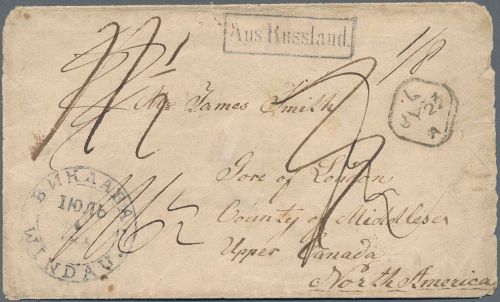 Aus Russland.
1/8
Mr James Smith
Gore of London
County of Middlesex
Upper Canada
North America
ВИНДАВА
ІЮЛЬ
WINDAU.